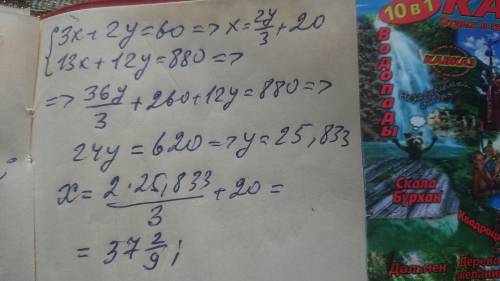 {3x+2y=60 => x=2y/3+20
{13x+12y=880 =>
=> 36y/3+260+12y=880 =>
24y=620 => y=25,833
x=2·25,833/3+20=
=37 2/9;
10 в 1
КА
Водопады
КАВКАЗ
Скала
Бурхан
Квадроци
Дольмен
Дерево
желаний